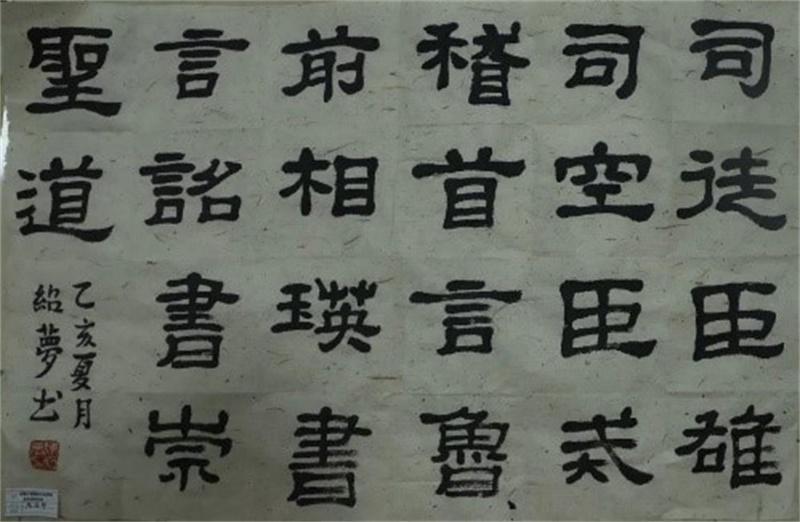 司徒臣雄
司空臣戒
稽首言魯
前相瑛書
言詔書崇
聖道
乙亥夏月
紹夢书